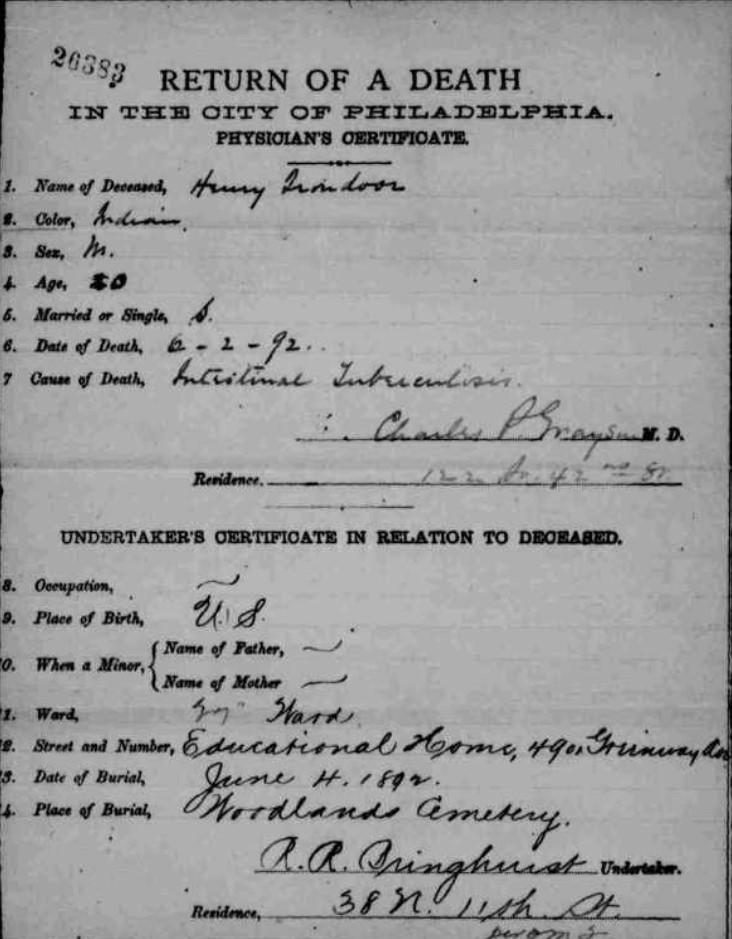 26383
RETURN OF A DEATH
IN THE CITY OF PHILADELPHIA.
PHYSICIAN'S CERTIFICATE.
1. Name of Deceased, Henry Irondoor
2. Color, Indian.
3. Sex, M.
4. Age, 20
5. Married or Single, S.
6. Date of Death, 6 - 2 - 92.
7 Cause of Death, Intestinal Tuberculosis.
Charles P. Grayson M. D.
Residence. 122 42nd St
UNDERTAKER'S CERTIFICATE IN RELATION TO DECEASED.
8. Occupation,
9. Place of Birth, U. S.
0. When a Minor, { Name of Father,
Name of Mother
1. Ward, Ward
2. Street and Number, Educational Home, 4901 Greenway Av
3. Date of Burial, June 4. 1892.
4. Place of Burial, Woodlands Cemetery.
R. R. Bringhurst Undertaker.
Residence, 38 N. 11th. St.